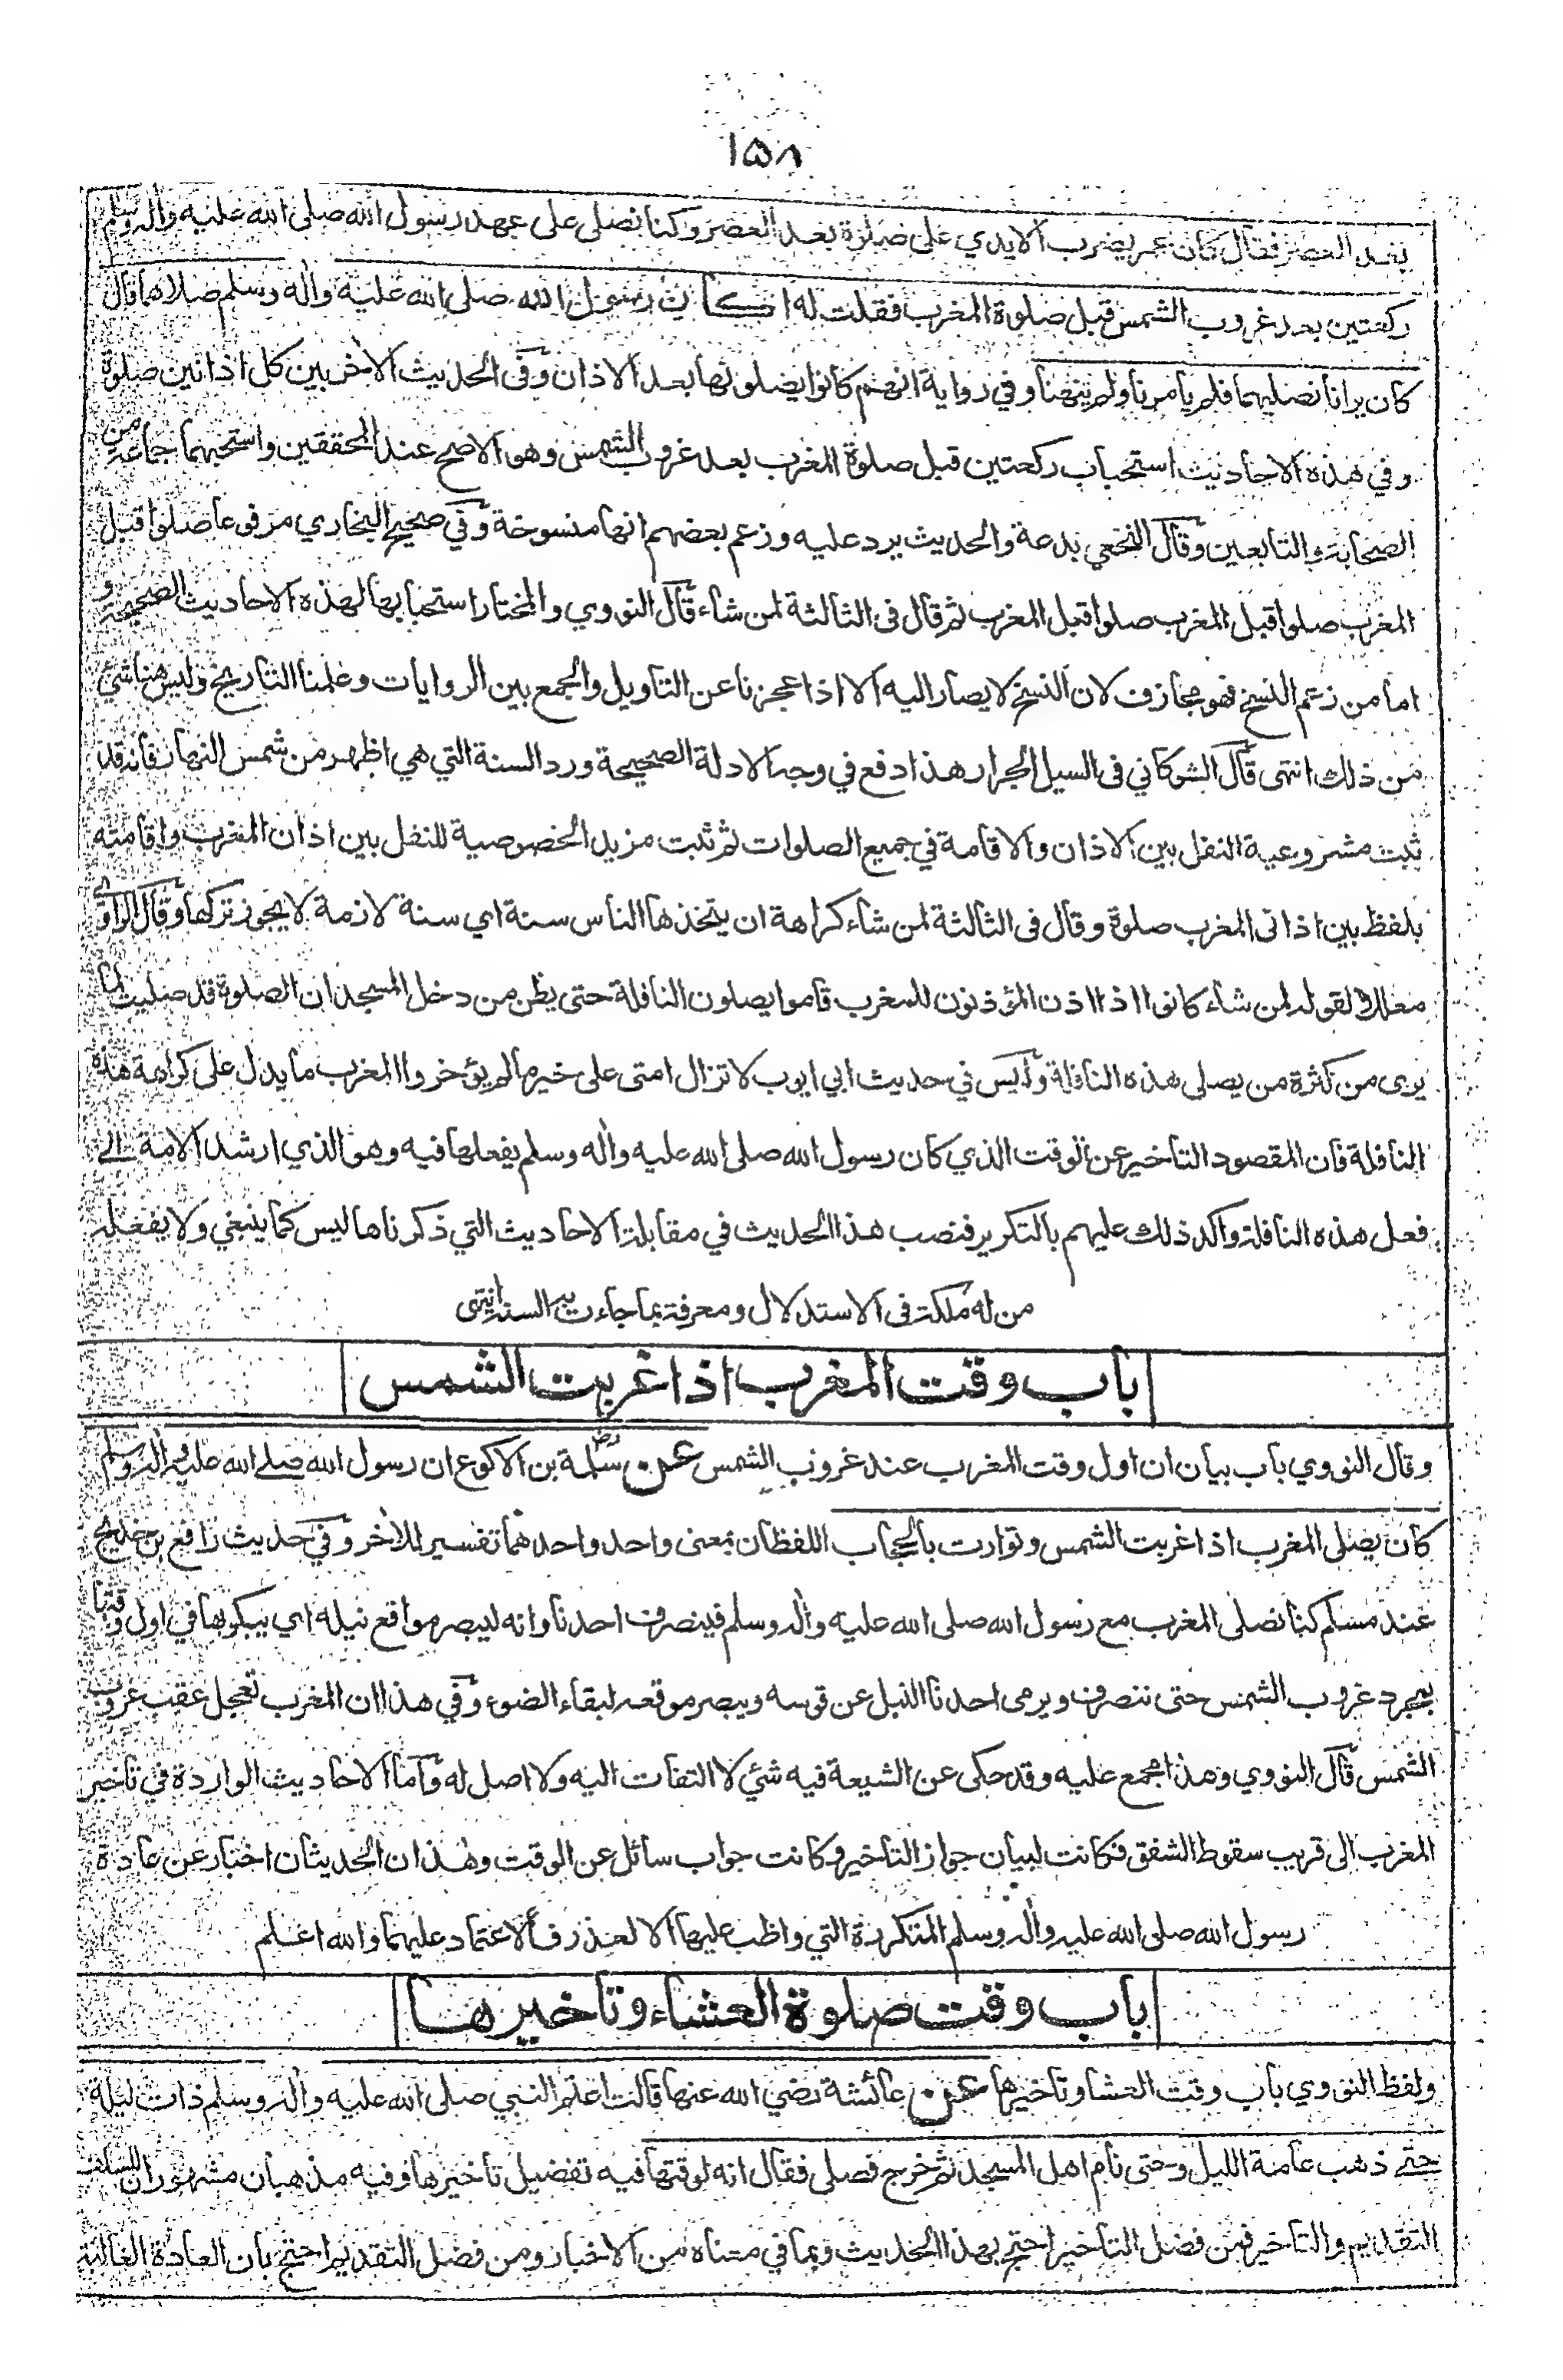 ١٥٨
بعد العصر فقال كان عمر يضرب الايدي على صلوة بعد العصر وكنا نصلى على عهد رسول الله صلى الله عليه واله وسلم
ركعتين بعد غروب الشمس قبل صلوة المغرب فقلت له اكان رسول الله صلى الله عليه واله وسلم صلاهما قال
كان يرانا نصليهما فلم يأمرنا ولم ينهنا وفي رواية انهم كانوا يصلونها بعد الاذان وفي الحديث الأخر بين كل اذانين صلوة
وفي هذه الاحاديث استحباب ركعتين قبل صلوة المغرب بعد غروب الشمس وهو الاصح عند المحققين واستحبهما جماعة من
الصحابة والتابعين وقال النخعي بدعة والحديث يرد عليه وزعم بعضهم انها منسوخة وفي صحيح البخاري مرفوعا صلوا قبل
المغرب صلوا قبل المغرب صلوا قبل المغرب ثم قال في الثالثة لمن شاء قال النووي والمختار استحبابها لهذه الاحاديث الصحيحة و
اما من زعم النسخ فهو مجازف لان النسخ لا يصار اليه الا اذا عجزنا عن التاويل والجمع بين الروايات وعلمنا التاريخ وليس هنا شئ
من ذلك انتهى قال الشوكاني فى السيل الجرار هذا دفع في وجه الادلة الصحيحة ورد السنة التي هي اظهر من شمس النهار فانه قد
ثبت مشروعية النفل بين الاذان والاقامة في جميع الصلوات ثم ثبت مزيد الخصوصية للنفل بين اذان المغرب واقامته
بلفظ بين اذانى المغرب صلوة وقال فى الثالثة لمن شاء كراهة ان يتخذها الناس سنة اي سنة لازمة لا يجوز تركها وقال الراوى
معللا لقوله لمن شاء كانوا اذا اذن المؤذنون للمغرب قاموا يصلون النافلة حتى يظن من دخل المسجد ان الصلوة قد صليت لما
يرى من كثرة من يصلى هذه النافلة وليس في حديث ابي ايوب لا تزال امتى على خير ما لم يؤخروا المغرب ما يدل على كراهة هذه
النافلة فان المقصود التاخير عن الوقت الذي كان رسول الله صلى الله عليه واله وسلم يفعلها فيه وهو الذي ارشد الامة الى
فعل هذه النافلة واكد ذلك عليهم بالتكرير فنصب هذا الحديث في مقابلة الاحاديث التي ذكرناها ليس كما ينبغي ولا يفعله
من له ملكة فى الاستدلال ومعرفة بما جاءت به السنة انتهى
باب وقت المغرب اذا غربت الشمس
وقال النووي باب بيان ان اول وقت المغرب عند غروب الشمس عن سلمة بن الاكوع رض ان رسول الله صلى الله عليه واله وسلم
كان يصلى المغرب اذا غربت الشمس وتوارت بالحجاب اللفظان بمعنى واحد واحدهما تفسير للأخر وفي حديث رافع بن خديج
عند مسلم كنا نصلى المغرب مع رسول الله صلى الله عليه واله وسلم فينصرف احدنا وانه ليبصر مواقع نبله اي يبكر بها في اول وقتها
بمجرد غروب الشمس حتى ننصرف ويرمى احدنا النبل عن قوسه ويبصر موقعه لبقاء الضوء وفي هذا ان المغرب تعجل عقب غروب
الشمس قال النووي وهذا مجمع عليه وقد حكى عن الشيعة فيه شئ لا التفات اليه ولا اصل له واما الاحاديث الواردة في تاخير
المغرب الى قريب سقوط الشفق فكانت لبيان جواز التاخير وكانت جواب سائل عن الوقت وهذان الحديثان اخبار عن عادة
رسول الله صلى الله عليه واله وسلم المتكررة التي واظب عليها الا لعذر فالاعتماد عليهما والله اعلم
باب وقت صلوة العشاء وتاخيرها
ولفظ النووي باب وقت العشا وتاخيرها عن عائشة رضي الله عنها قالت اعتم النبي صلى الله عليه واله وسلم ذات ليلة
حتى ذهب عامة الليل وحتى نام اهل المسجد ثم خرج فصلى فقال انه لوقتها فيه تفضيل تاخيرها وفيه مذهبان مشهوران للسلف
التقديم والتاخير فمن فضل التاخير احتج بهذا الحديث وبما في معناه من الاخبار ومن فضل التقديم احتج بان العادة الغالبة